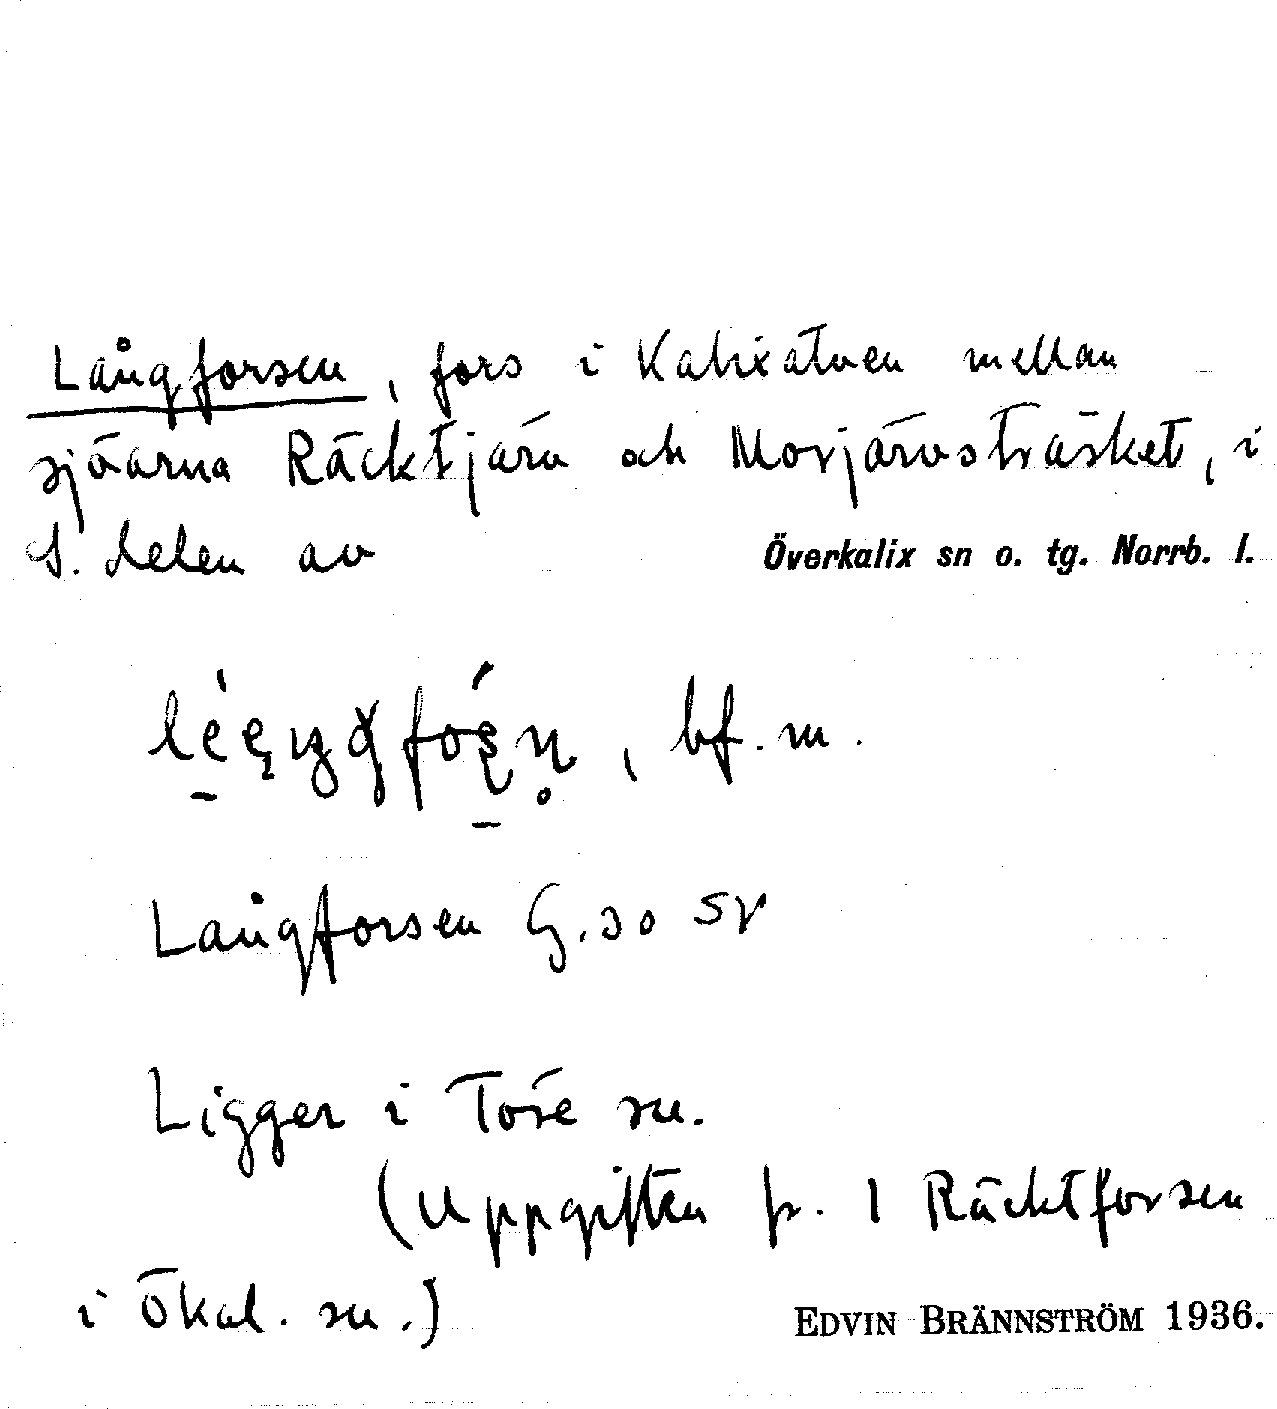 Långforsen, fors i Kalixälven mellan
sjöarna Räcktjärv och Morjärvsträsket, i
S. delen av Överkalix sn o. tg. Norrb. l.
bf. m.
Långforsen G. 30 SV
Ligger i Töre sn.
(Uppgiften fr. 1 Räcktforsen
i Ökal. sn.) EDVIN BRÄNNSTRÖM 1936.